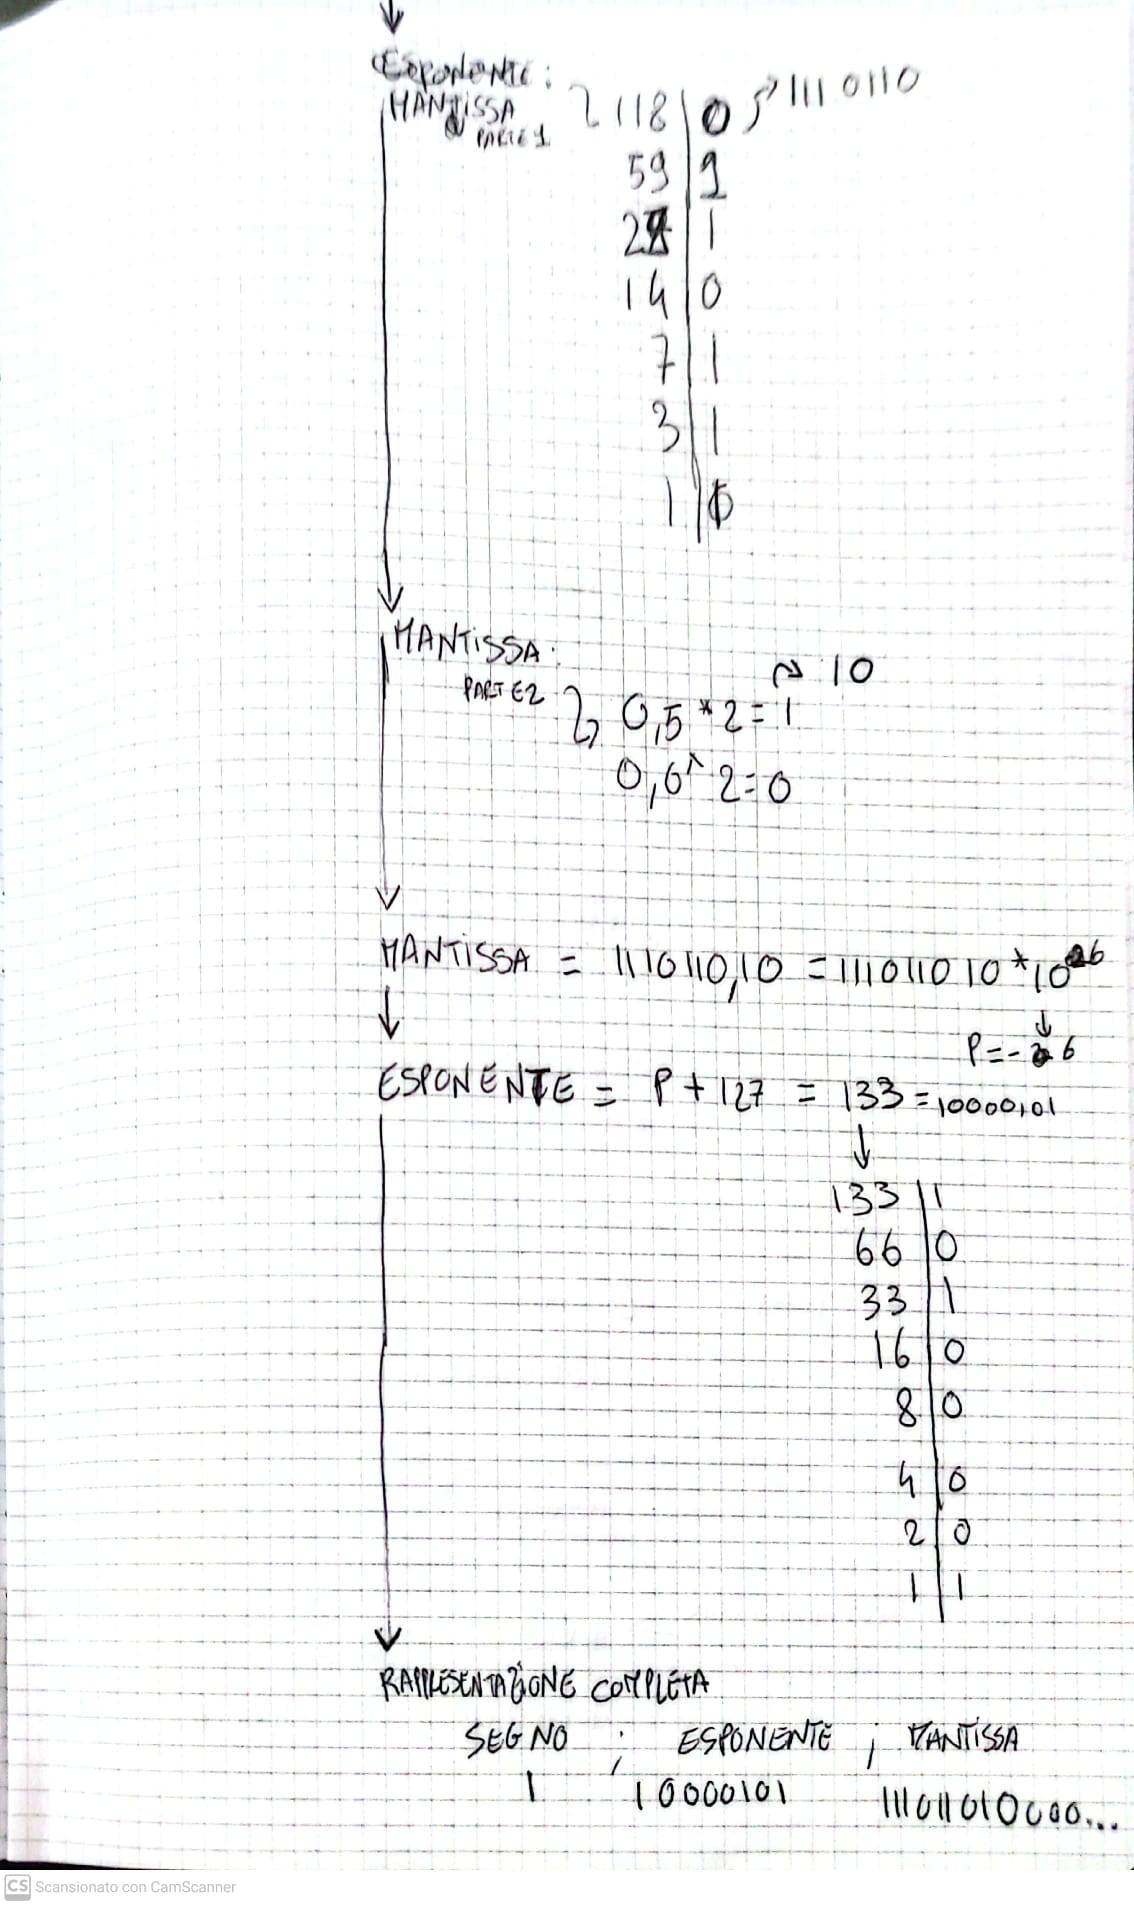 ESPONENTE:
MANTISSA
PARTE 1
118 | 0 1110110
59 | 1
29 | 1
14 | 0
7 | 1
3 | 1
1 |
MANTISSA:
PARTE 2
10
0,5 * 2 = 1
0,0 * 2 = 0
MANTISSA = 1110110,10 = 111011010 * 10^6
P = - 6
ESPONENTE = P + 127 = 133 = 10000101
133 | 1
66 | 0
33 | 1
16 | 0
8 | 0
4 | 0
2 | 0
1 | 1
RAPPRESENTAZIONE COMPLETA
SEGNO ; ESPONENTE ; MANTISSA
1 10000101 111011010000...
CS Scansionato con CamScanner